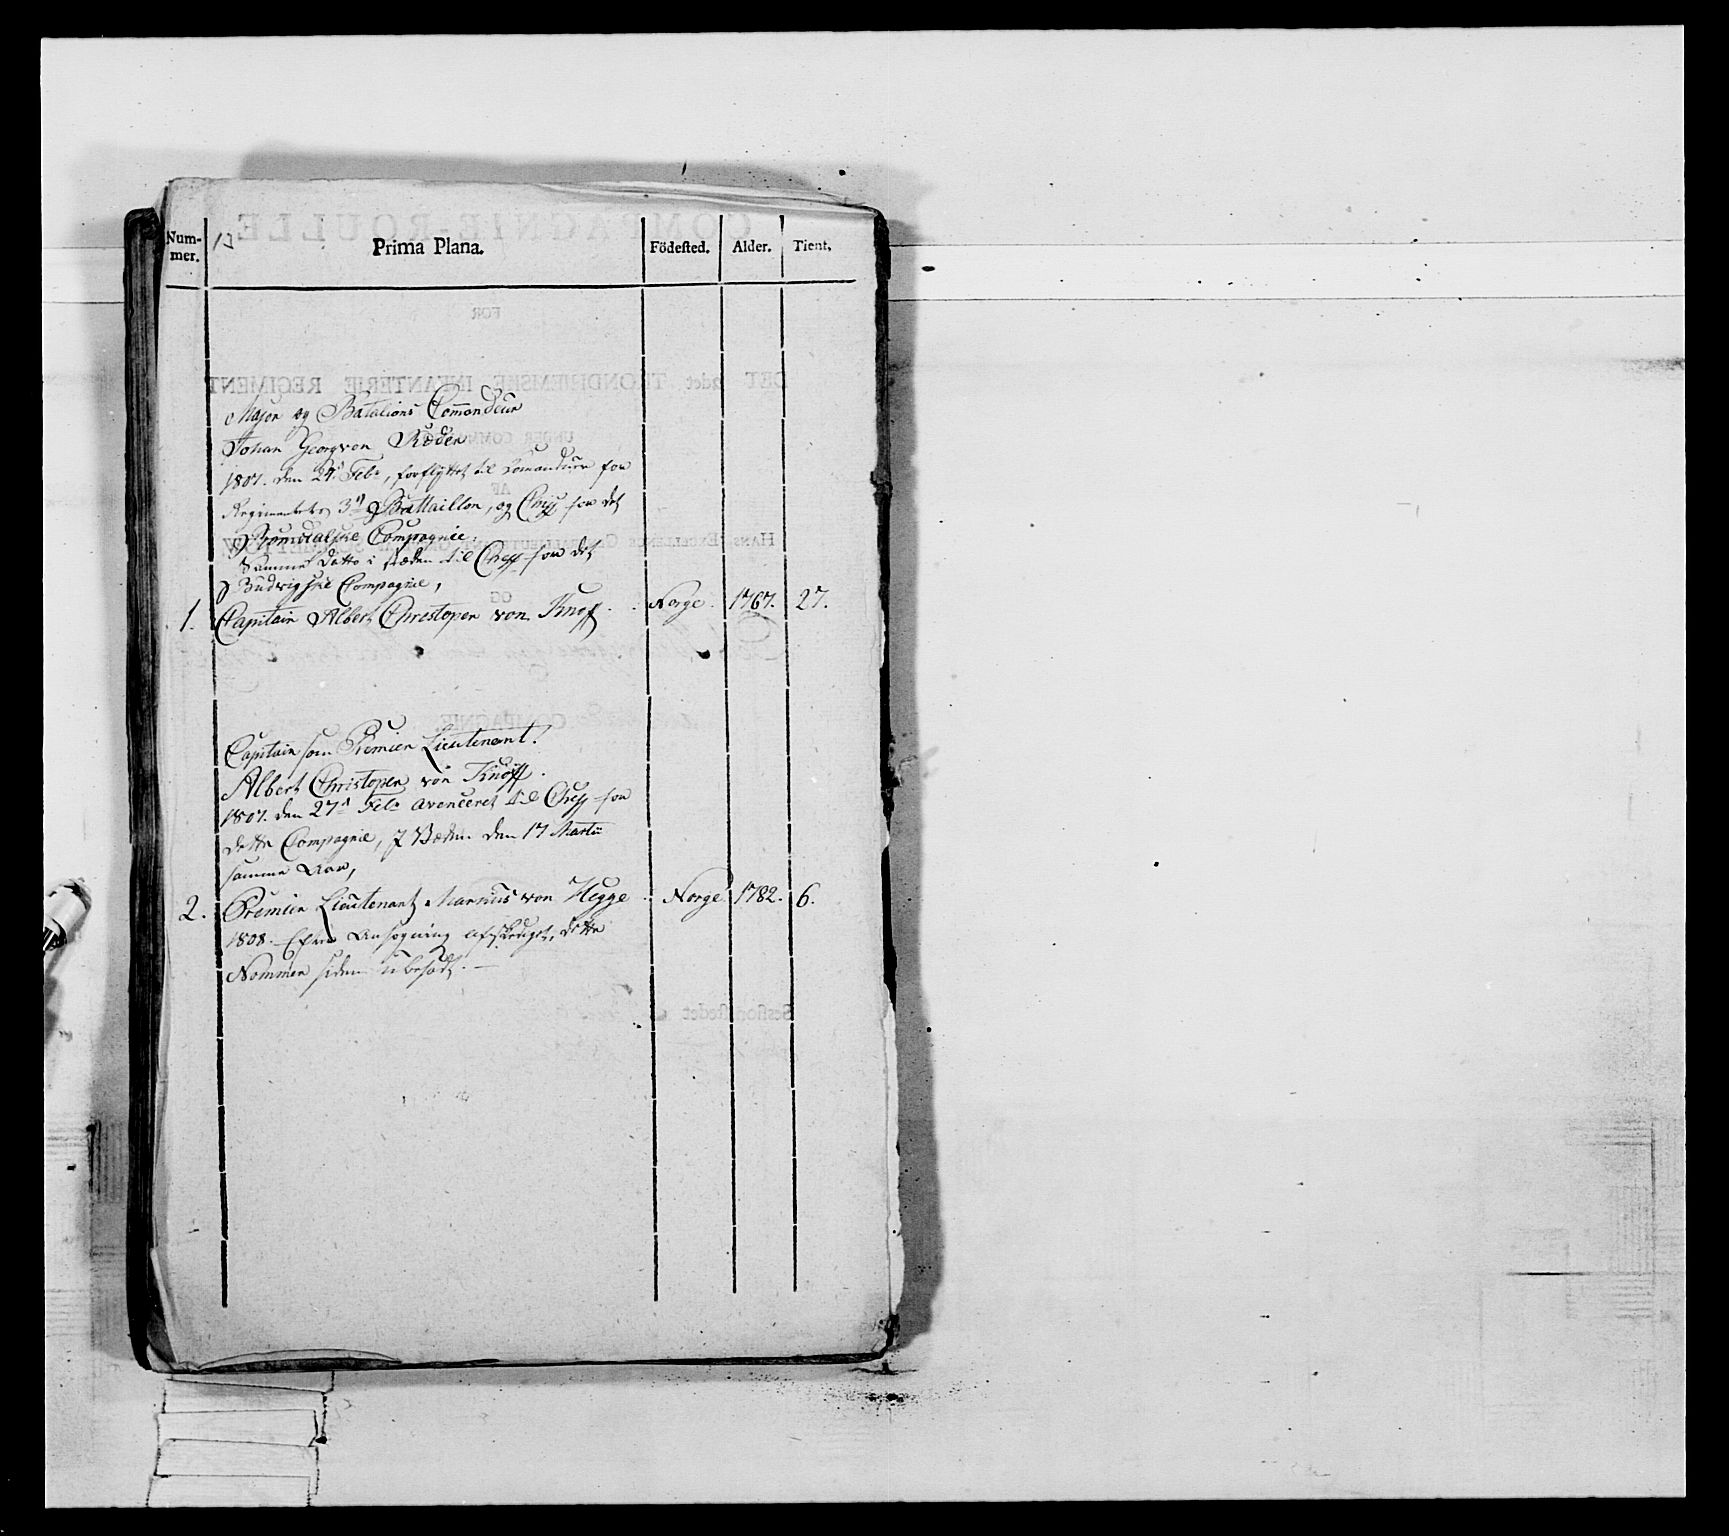 Num-
mer.
13
Prima Plana.
Födested.
Alder.
Tient.
Major og Batalions Comandeur
Johan Georg von Ræder
1807. den 27d Febr, forflyttet til Comandeur for
Regimentets 3d Battaillon, og Chef for det
Romsdalske Compagnie.
Samme Datto i stæden til Chef for det
Compagnie,
1. Capitain Albert Christopher von Knoff. Norge. 1767. 27.
Capitain som Premier Lieutenant.
Albert Christopher von Knoff.
1807. den 27d Febr avenceret til Chef for
dette Compagnie, den 17 Martii
samme Aar,
2. Premier Lieutenant von Hegge Norge 1782. 6.
1808. Efter Ansøgning afskediget, dette
Nommer siden ubesadt. —